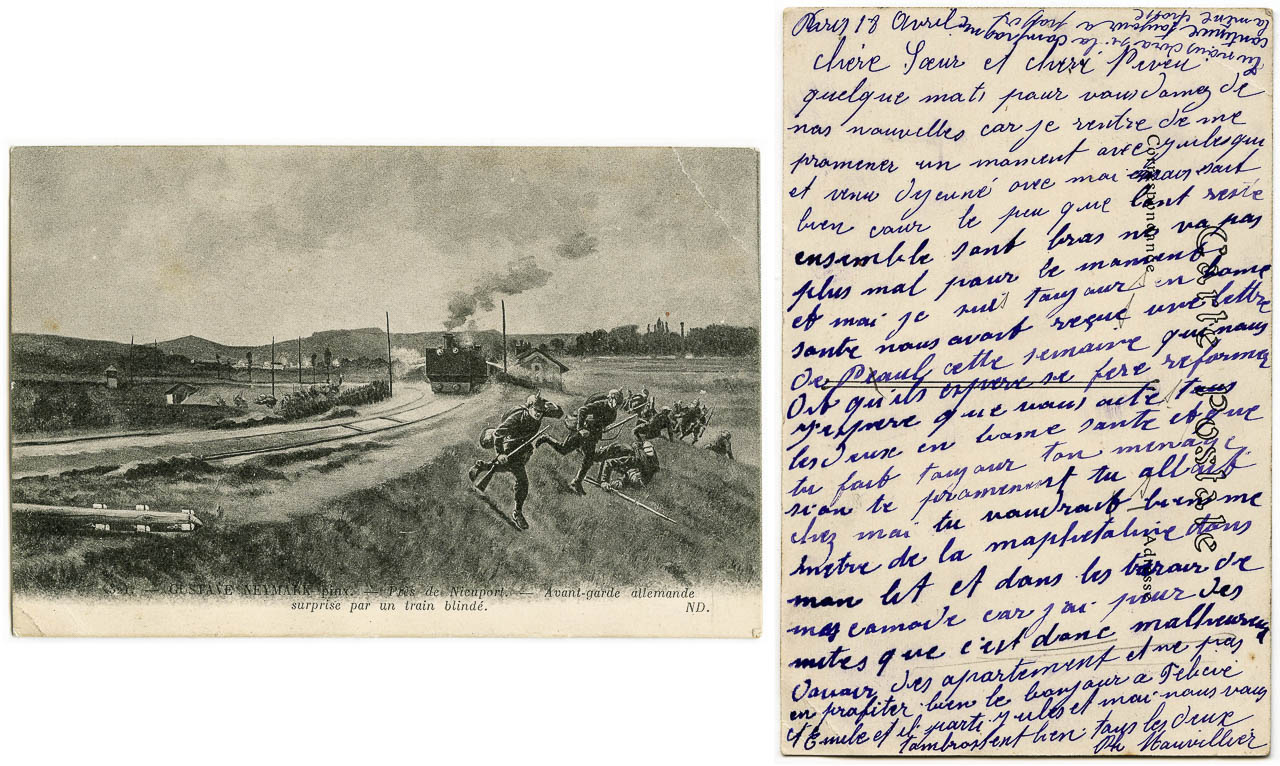 21. — GUSTAVE NEYMARK pinx. — Près de Nieuport. — Avant-garde allemande
surprise par un train blindé.
ND.
Paris 18 Avril
chére Sœur et chere Neveu
quelque mots pour vous donnez de
nos nouvelles car je rentre de me
promener un moment avec yules qui
et venu dyeuné avec moi mais sait
bien cour le peu que lont reste
ensemble sont bras ne va pas
plus mal pour le moment
et moi je suis toujour en bonne
sante nous avont reçue une lettre
de Peaul cette semaine qui nous
dit qu'ils espere se fere reformer
j'espere que vous aite tous
les deux en bonne sante et que
tu fait toujour ton menage
si on te promenent tu allait
chez moi tu voudrait bien me
metre de la naphetaline dans
mon lit et dans les tiroir de
mes comode car j'ai pour des
mites que c'est donc malheureux
d'avoir des apartement et ne pas
en profiter bien le bonjour à Felicie
et Emile et il parti yules et moi nous vous
tambrossent bien tous les deux
Mauvillier
tu nous dira si la compagnie
continue toujour a
la même chose
Correspondance
Carte Postale
Adresse